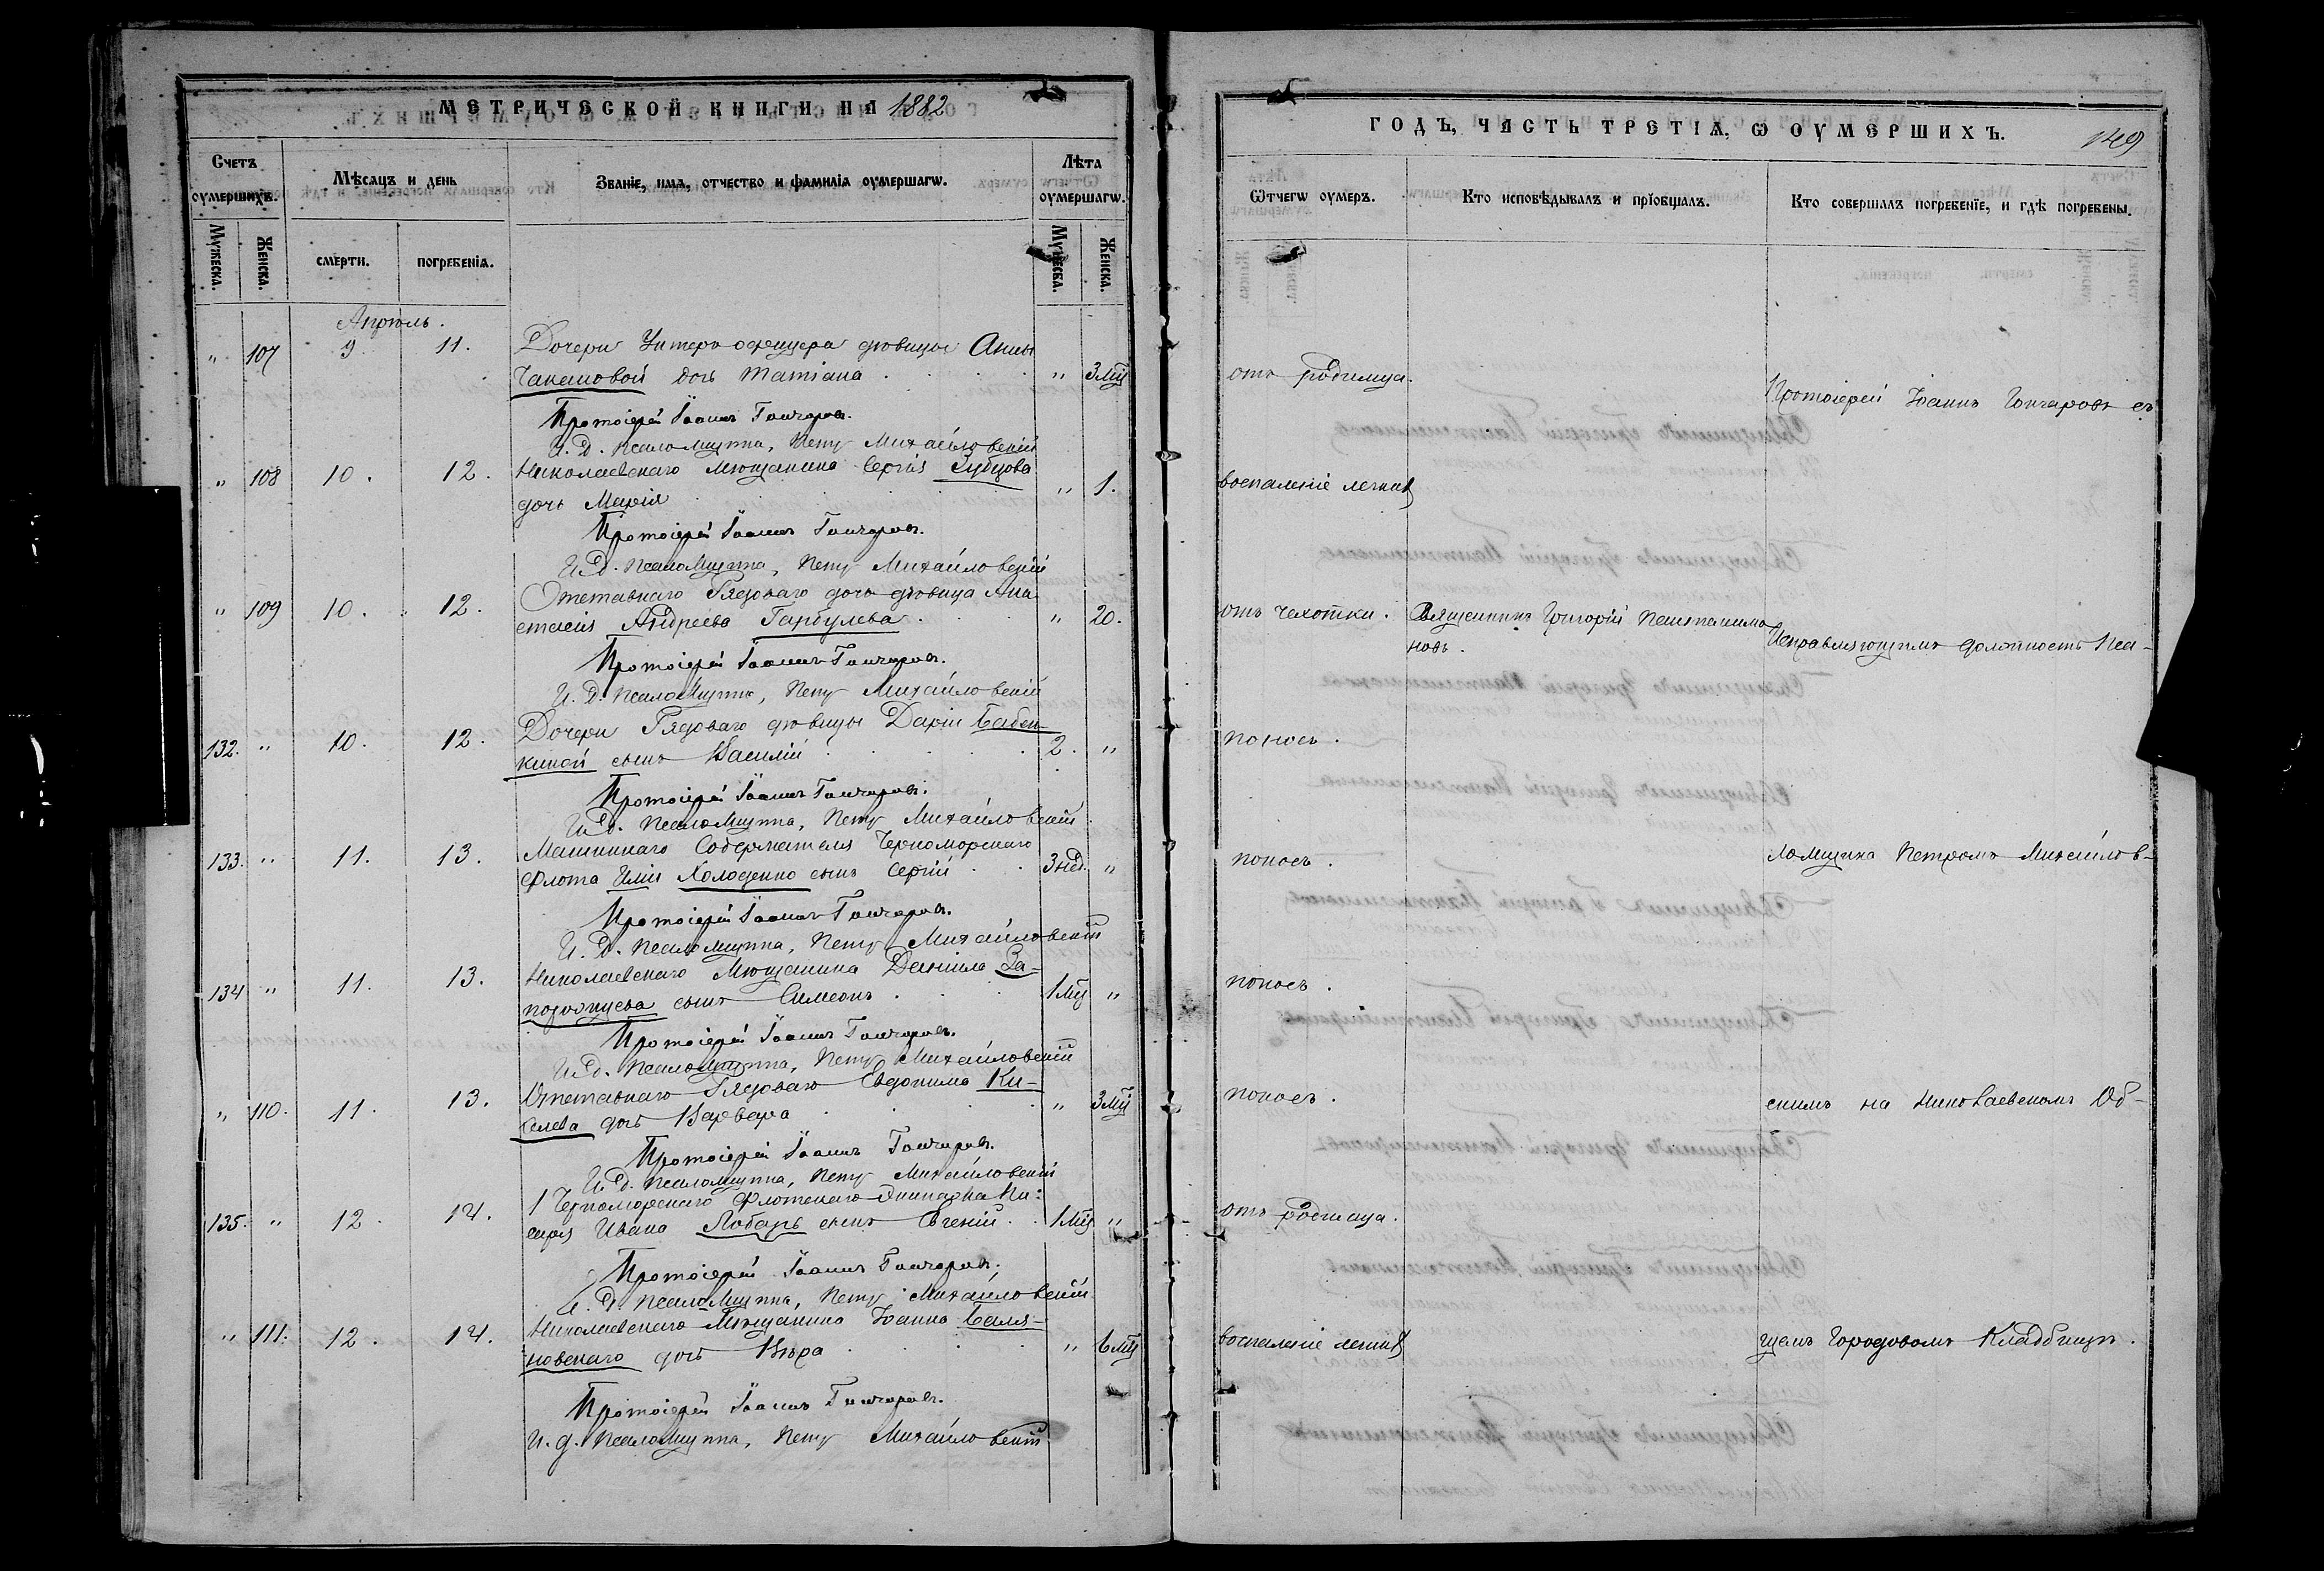 МЕТРИЧЕСКОЙ КНИГИ НА 1882
Счетъ оумершихъ.
Мѣсяцъ и день
Званіе, имя, отчество и фамилія оумершагѡ.
Лѣта оумершагѡ.
Мужеска.
Женска.
смерти.
погребенія.
Мужеска.
Женска.
Апрѣль.
" 107 9 11. Дочери Унтеръ офицера дѣвицы Анны
Чакановой дочь Татіана " 3 мц
Протоіерей Іоаннъ Гончаровъ.
И. Д. Псаломщика, Петръ Михайловскій
" 108 10. 12. Николаевскаго мѣщанина Сергія Зубцова
дочь Марія " 1.
Протоіерей Іоаннъ Гончаровъ.
И.Д. Псаломщика, Петръ Михайловскій
" 109 10. 12. Отставнаго Рядоваго дочь дѣвица Ана
стасія Андреева Гарбулева " 20.
Протоіерей Іоаннъ Гончаровъ.
И. Д. Псаломщика, Петръ Михайловскій
132. " 10. 12. Дочери Рядоваго дѣвицы Даріи Бабен-
киной сынъ Василій 2. "
Протоіерей Іоаннъ Гончаровъ.
И.Д. Псаломщика, Петръ Михайловскій
133. " 11. 13. Содержателя Черноморскаго
флота Иліи Холоденко сынъ Сергій 3 нед. "
Протоіерей Іоаннъ Гончаровъ.
И. Д. Псаломщика, Петръ Михайловскій
134 " 11. 13. Николаевскаго Мѣщанина Даніила За-
порожцева сынъ Симеонъ 1 мц "
Протоіерей Іоаннъ Гончаровъ.
И.Д. Псаломщика, Петръ Михайловскій
" 110. 11. 13. Отставнаго Рядоваго Евдокима Ки-
селева дочь Варвара " 3 мц
Протоіерей Іоаннъ Гончаровъ.
И.Д. Псаломщика, Петръ Михайловскій
135. " 12. 14. 1 Черноморскаго Флотскаго Экипажа Пи-
саря Ивана Лобарь сынъ Евгеній 1 мц "
Протоіерей Іоаннъ Гончаровъ.
И. Д. Псаломщика, Петръ Михайловскій
" 111. 12. 14. Николаевскаго Мѣщанина Іоанна Баля-
новскаго дочь Вѣра " 6 мц
Протоіерей Іоаннъ Гончаровъ.
И. д. Псаломщика, Петръ Михайловскій
ГОДЪ, ЧАСТЬ ТРЕТІЯ, Ѡ ОУМЕРШИХЪ. 149
Ѿтчегѡ оумеръ.
Кто исповѣдывалъ и прїобщалъ.
Кто совершалъ погребенїе, и гдѣ погребены.
отъ родимца.
Протоіерей Іоаннъ Гончаровъ съ
воспаленіе легкихъ
отъ чахотки. Священникъ Григорій Пантелимо
новъ. Исправляющимъ должность Пса-
поносъ.
поносъ. ломщика Петромъ Михайлов-
поносъ.
поносъ. скимъ на Николаевскомъ Об-
отъ родимца.
воспаленіе легкихъ щемъ Городовомъ Кладбищѣ.